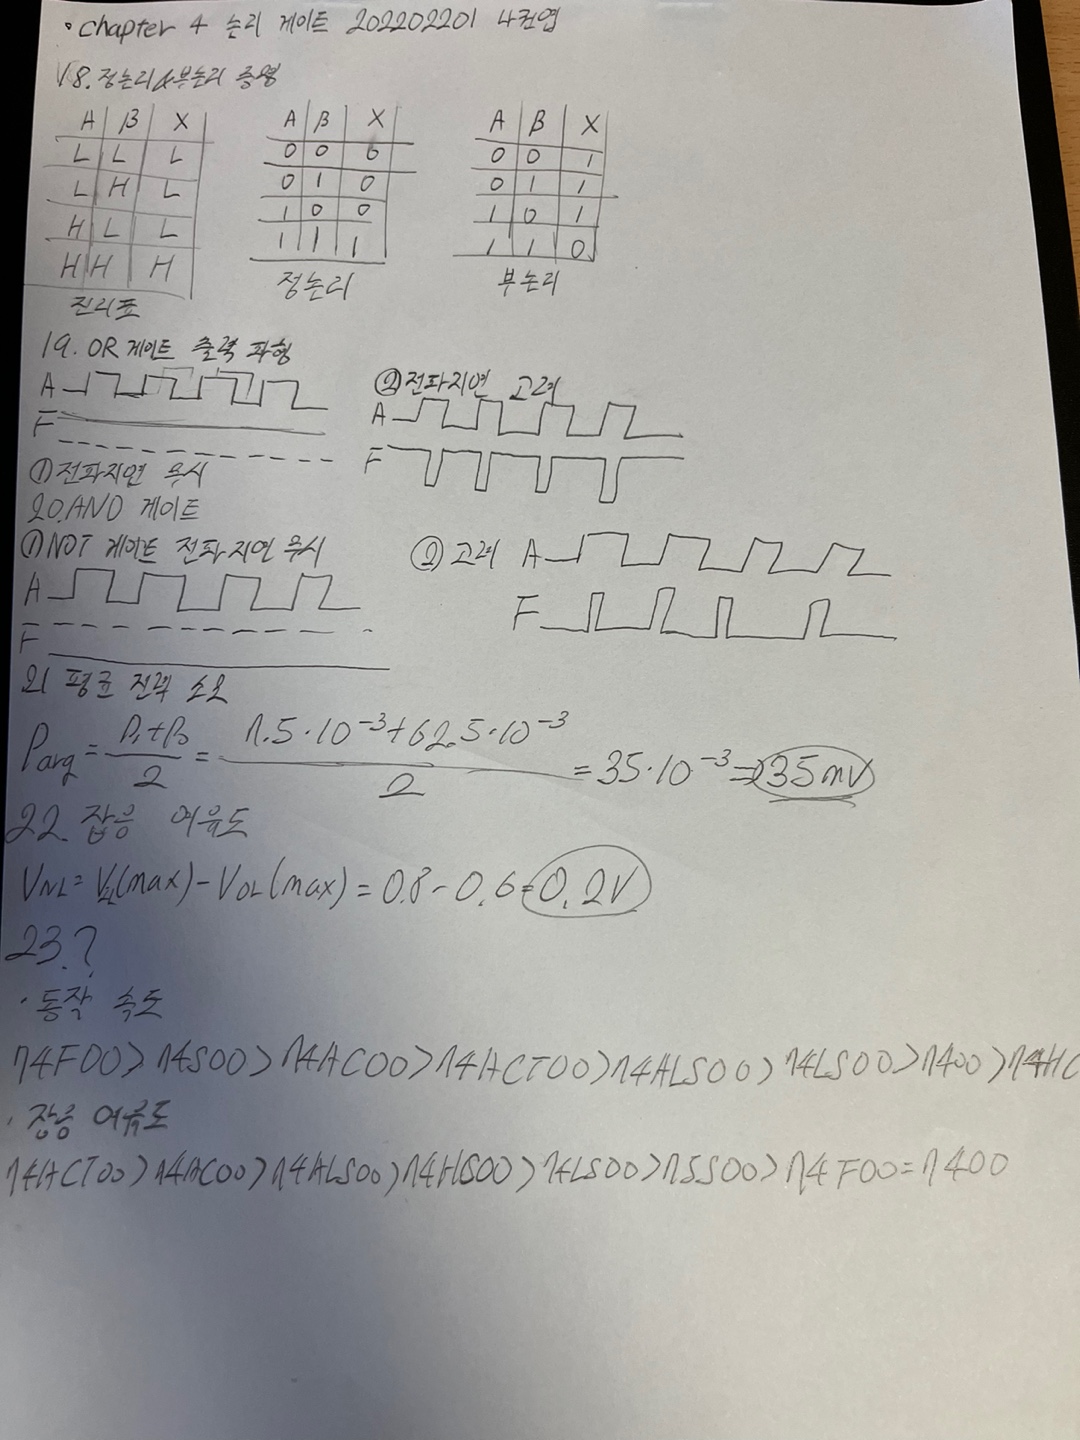 • Chapter 4 논리 게이트 202202201 나권엽
18. 정논리&부논리 증명
A B X
L L L
L H L
H L L
H H H
진리표
A B X
0 0 0
0 1 0
1 0 0
1 1 1
정논리
A B X
0 0 1
0 1 1
1 0 1
1 1 0
부논리
19. OR 게이트 출력 파형
A
F
① 전파지연 무시
② 전파지연 고려
A
F
20. AND 게이트
① NOT 게이트 전파 지연 무시
A
F
② 고려
A
F
21 평균 전력 소모
Pavg = P1+P0 / 2 = 7.5·10⁻³+62.5·10⁻³ / 2 = 35·10⁻³ ⇒ 35mV
22. 잡음 여유도
VNL = VIL(max) - VOL(max) = 0.8 - 0.6 = 0.2V
23. ?
· 동작 속도
74F00 > 74S00 > 74AC00 > 74ACT00 > 74ALS00 > 74LS00 > 7400 > 74HC
· 잡음 여유도
74ACT00 > 74AC00 > 74ALS00 > 74LS00 > 75S00 > 74F00 = 7400